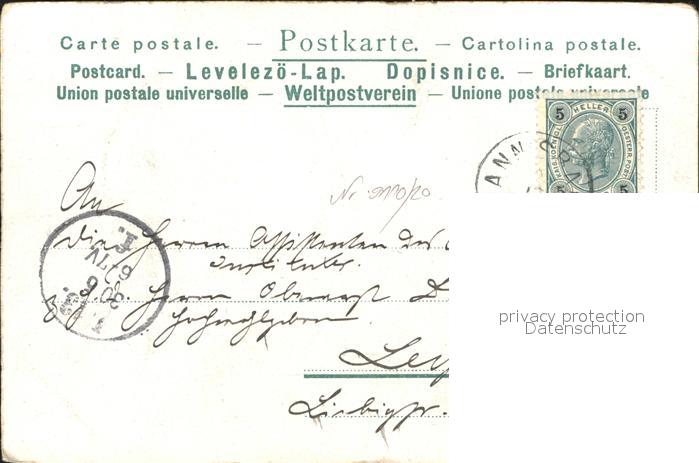 Carte postale. — Postkarte. — Cartolina postale.
Postcard. — Levelezö-Lap. Dopisnice. — Briefkaart.
Union postale universelle — Weltpostverein — Unione postale universale
5 HELLER 5
KAIS. KOENIGL. OESTERR. POST
5 5
ANN
Nr. 9110/20
An
die Herren Assistenten des
Institutes.
Herrn Oberarzt D
Hochwohlgeboren
Lei
Liebigstr.
privacy protection
Datenschutz